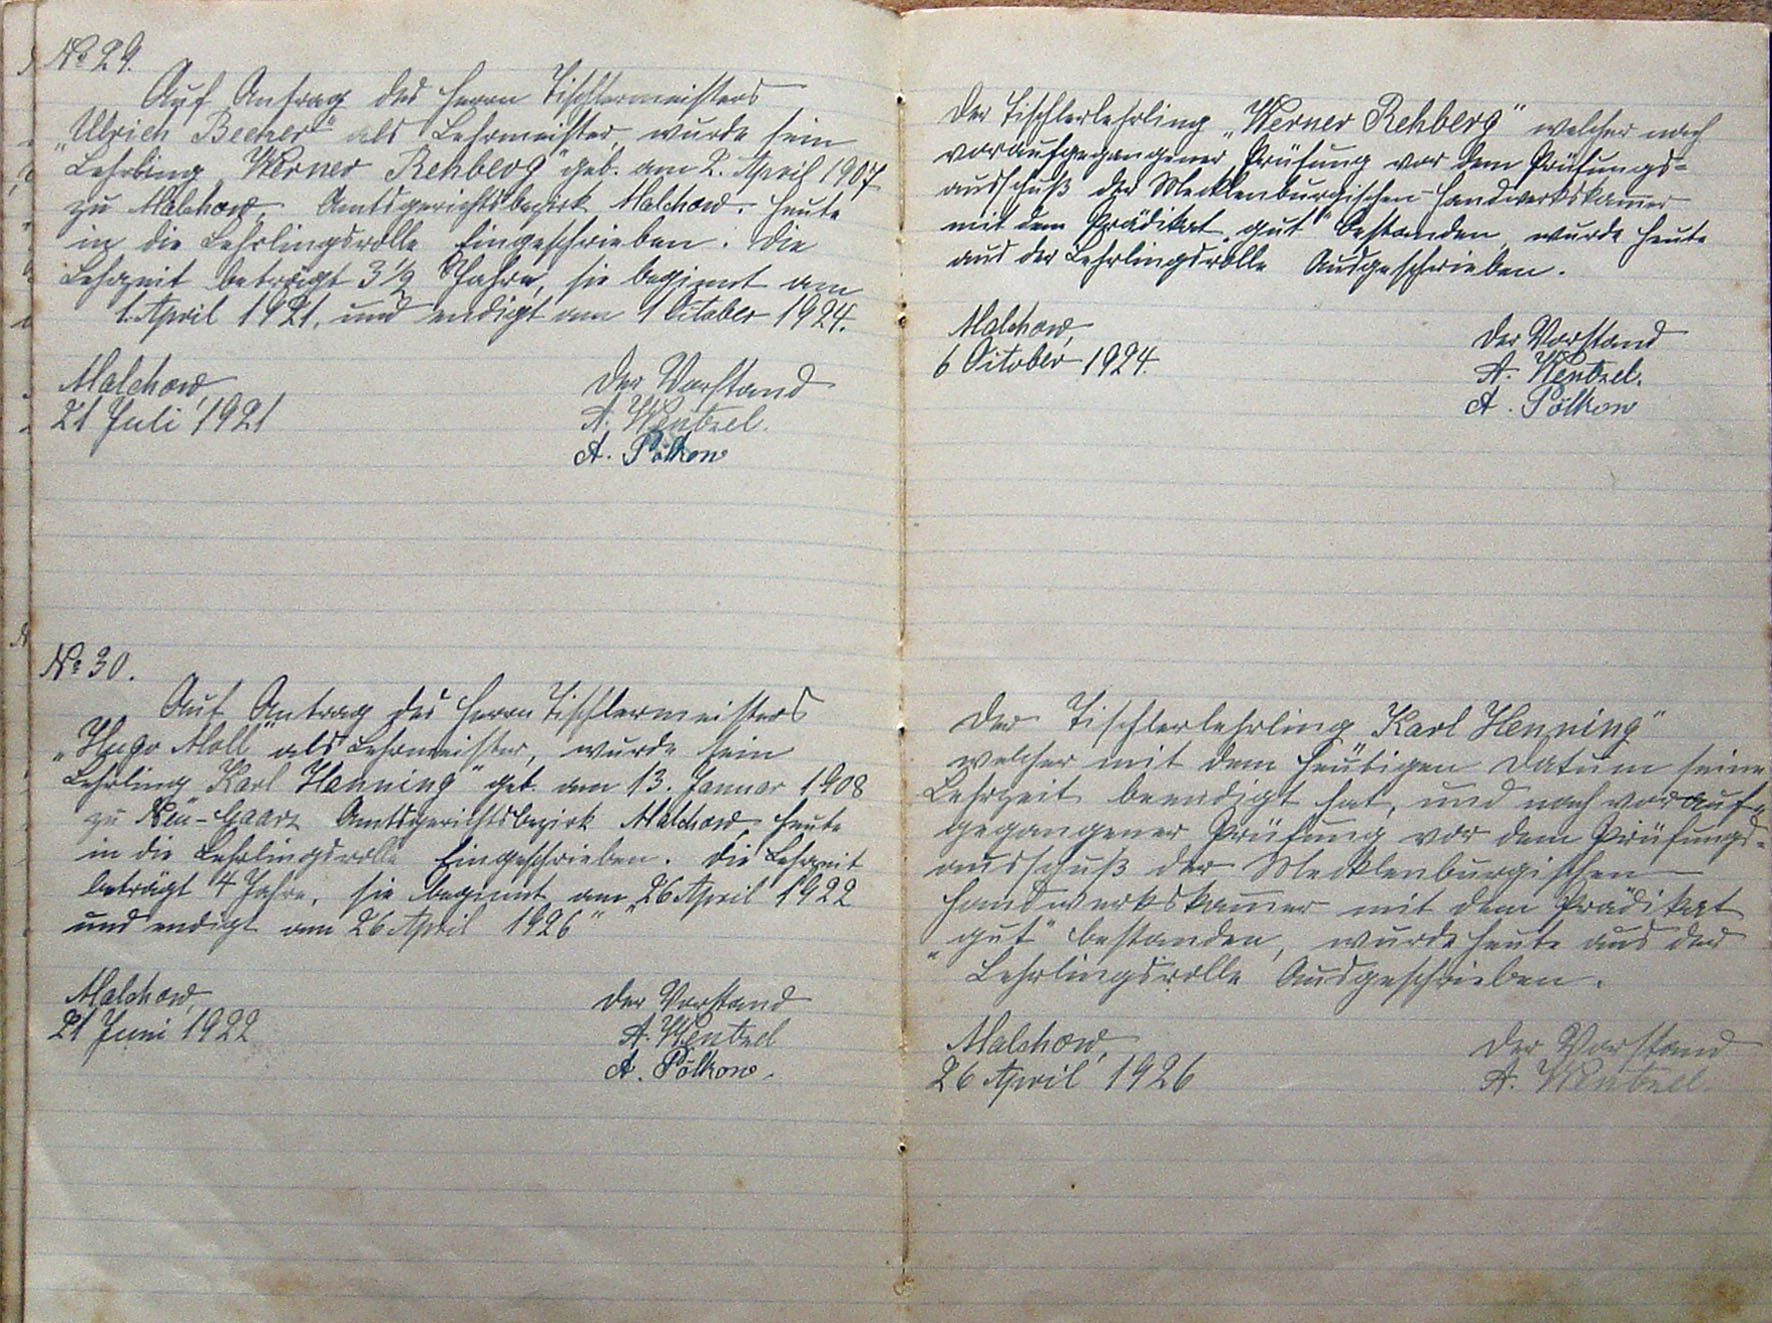 No 29.
Auf Antrag des Herrn Tischlermeisters
„Ulrich Beener“ als Lehrmeister, wurde sein
Lehrling „Werner Rehberg“ geb. am 2. April 1907
zu Malchow, Amtsgerichtsbezirk Malchow. heute
in die Lehrlingsrolle Eingeschrieben. Die
Lehrzeit beträgt 3 1/2 Jahre, sie beginnt am
1. April 1921. und endigt am 1 October 1924.
Malchow,
21 Juli 1921
Der Vorstand
A. Wentzel.
A. Pölkow
No 30.
Auf Antrag des Herrn Tischlermeisters
„Hugo Moll“ als Lehrmeister, wurde sein
Lehrling „Karl Henning“ geb. am 13. Januar 1908
zu Neu-Gaarz Amtsgerichtsbezirk Malchow heute
in die Lehrlingsrolle Eingeschrieben. Die Lehrzeit
beträgt 4 Jahre, sie beginnt am „26 April 1922
und endigt am 26 April 1926“
Malchow,
21 Juni 1922
Der Vorstand
A. Wentzel
A. Pölkow.
Der Tischlerlehrling „Werner Rehberg“ welcher nach
voraufgegangener Prüfung vor dem Prüfungs-
ausschuß der Mecklenburgischen Handwerkskammer
mit dem Prädikat „gut“ bestanden, wurde heute
aus der Lehrlingsrolle Ausgeschrieben.
Malchow,
6 October 1924.
Der Vorstand
A. Wentzel.
A. Pölkow
Der Tischlerlehrling Karl Henning“
welcher mit dem heutigen Datum seine
Lehrzeit beendigt hat, und nach vorauf-
gegangener Prüfung vor dem Prüfungs-
ausschuß der Mecklenburgischen
Handwerkskammer mit dem Prädikat
„gut“ bestanden, wurde heute aus der
Lehrlingsrolle Ausgeschrieben.
Malchow,
26 April 1926
Der Vorstand
A. Wentzel.